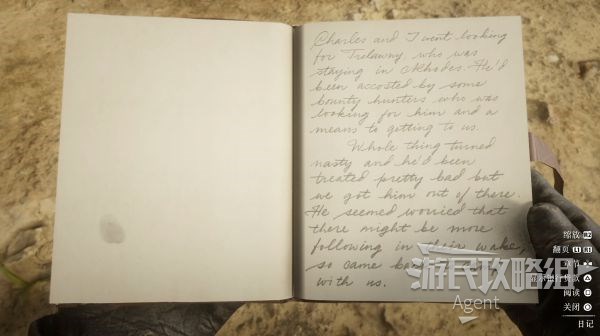 Charles and I went looking
for Trelawny, who was
staying in Rhodes. He'd
been accosted by some
bounty hunters who was
looking for him and a
means to getting to us.
Whole thing turned
nasty and he'd been
treated pretty bad but
we got him out of there.
He seemed worried that
there might be more
following in their wake,
so came
with us.
游民攻略组
Agent
缩放 R2
翻页 L1 R1
阅读
关闭
日记